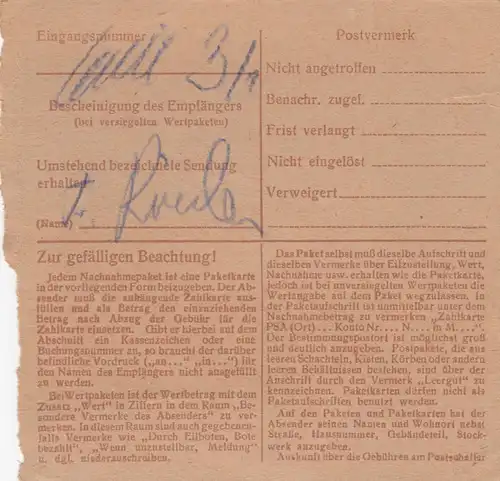 Eingangsnummer
3/1
Bescheinigung des Empfängers
(bei versiegelten Wertpaketen)
Umstehend bezeichnete Sendung
erhalten
(Name)
Postvermerk
Nicht angetroffen
Benachr. zugef.
Frist verlangt
Nicht eingelöst
Verweigert
Zur gefälligen Beachtung!
Jedem Nachnahmepaket ist eine Paketkarte
in der vorliegenden Form beizugeben. Der Ab-
sender muß die anhängende Zahlkarte aus-
füllen und als Betrag den einzuziehenden
Betrag nach Abzug der Gebühr für die
Zahlkarte einsetzen. Gibt er hierbei auf dem
Abschnitt ein Kassenzeichen oder eine
Buchungsnummer an, so braucht der darüber
befindliche Vordruck („an...“, „in...“) für
den Namen des Empfängers nicht ausgefüllt
zu werden.
Bei Wertpaketen ist der Wertbetrag mit dem
Zusatz „Wert“ in Ziffern in dem Raum „Be-
sondere Vermerke des Absenders“ zu ver-
merken. In diesem Raum sind auch gegebenen-
falls Vermerke wie „Durch Eilboten, Bote
bezahlt“, „Wenn unzustellbar, Meldung“
u. dgl. niederzuschreiben.
Das Paket selbst muß dieselbe Aufschrift und
dieselben Vermerke über Eilzustellung, Wert,
Nachnahme usw. erhalten wie die Paketkarte,
jedoch ist bei unversiegelten Wertpaketen die
Wertangabe auf dem Paket wegzulassen. In
der Paketaufschrift ist unmittelbar unter dem
Nachnahmebetrag zu vermerken „Zahlkarte
PSA (Ort)... Konto Nr.... N... in M...“.
Der Bestimmungspostort ist möglichst groß
und deutlich anzugeben. Postpakete, die aus
leeren Schachteln, Kästen, Körben oder andern
leeren Behältnissen bestehen, sind über der
Anschrift durch den Vermerk „Leergut“ zu
kennzeichnen. Paketkarten dürfen nicht als
Paketaufschriften benutzt werden.
Auf den Paketen und Paketkarten hat der
Absender seinen Namen und Wohnort nebst
Straße, Hausnummer, Gebäudeteil, Stock-
werk anzugeben.
Auskunft über die Gebühren am Postschalter